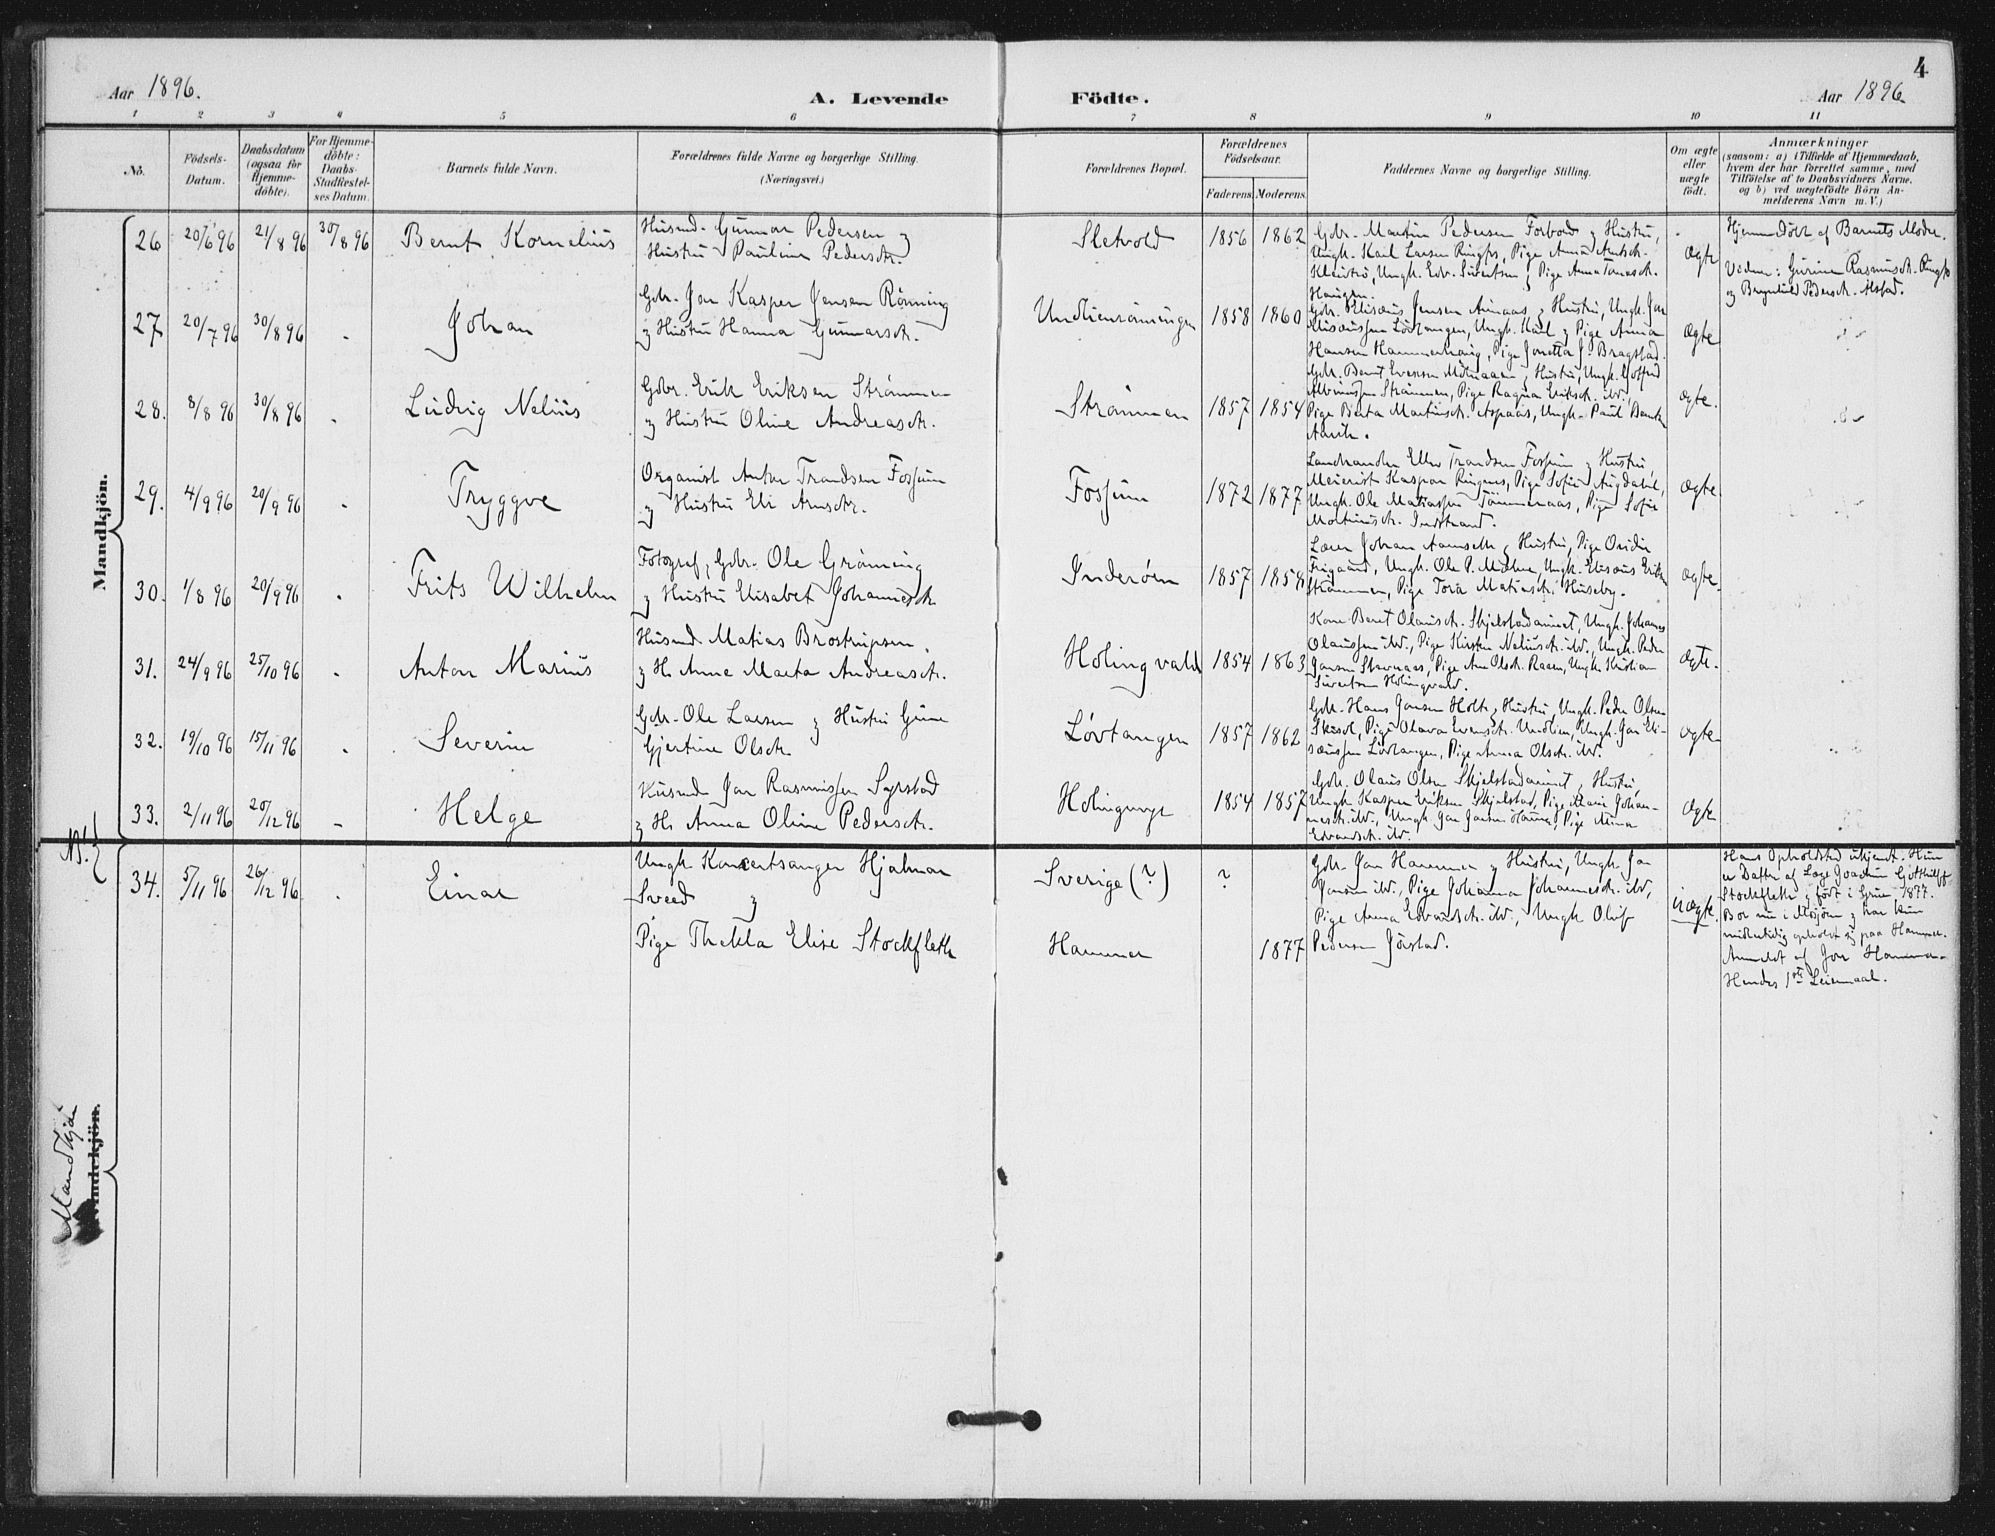 4
Aar 1896.
A. Levende
Födte.
Aar 1896
1 2 3 4 5 6 7 8 9 10 11
No.
Födsels-
Datum.
Daabsdatum
(ogsaa for
Hjemme-
döbte).
For Hjemme-
döbte:
Daabs-
Stadfæstel-
ses Datum.
Barnets fulde Navn.
Forældrenes fulde Navne og borgerlige Stilling.
(Næringsvei.)
Forældrenes Bopæl.
Forældrenes
Födselsaar.
Faderens
Moderens
Faddernes Navne og borgerlige Stilling.
Om ægte
eller
uægte
födt.
Anmærkninger
(saasom: a) i Tilfælde af Hjemmedaab,
hvem der har forrettet samme, med
Tilföielse af to Daabsvidners Navne,
og b) ved uægtefödte Börn An-
melderens Navn m. V.)
Mandkjön.
26 20/6 96 21/8 96 30/8 96 Bernt Kornelius
Husmd. Gunnar Pedersen og
Hustru Pauline Pedersdtr.
Sletvold 1856 1862
Gbr. Martin Pedersen Forbord og Hustru,
Ungk. Karl Larsen Ringss, Pige Anna
Ungk. Edv. Sivertsen, Pige Anna
Haugen.
Ægte
Hjemmedöbt af Barnets Moder.
Vidner: Gurine Rasmusdtr.
og Bergitte Pedersdtr. Alstad.
27 20/7 96 30/8 96 - Johan
Gbr. Jon Kasper Jensen Rönning
og Hustru Hanna Gunnarsdtr.
Undlienrönningen 1858 1860
Gbr. Elisæus Jensen Aunaas og Hustru, Ungk. Jon
Elisæussen Lövtangen, Ungk. Karl og Pige Anna
Hansen Hammerhaug, Pige Jonetta J. Bragstad.
Ægte
28. 8/8 96 30/8 96 . Ludvig Nelius
Gbr. Erik Eriksen Strömmen
og Hustru Oline Andreasdtr.
Strömmen 1857 1854
Gbr. Bernt Evensen og Hustru, Ungk.
Strömmen, Pige Ragna Eriksdtr. ibd.,
Pige Berta Martinsdtr. Aspaas, Ungk. Paul
Ægte.
29. 4/9 96 20/9 96 . Tryggve
Organist Anton Trondsen Fossum
og Hustru Eli Arnsdtr.
Fossum 1872 1877
Landhandler Eller Trondsen Fossum og Hustru,
Meierist Kaspar Ringens, Pige Sofie Augdahl,
Ungk. Ole Matiassen Tömmeraas, Pige Sofie
Martinusdtr. Indstrand.
Ægte
30. 1/8 96 20/9 96 . Frits Wilhelm
Fotograf, Gbr. Ole Grönning
og Hustru Elisabet Johannesdtr.
Inderöen 1857 1858
Lærer Johan og Hustru, Pige
Frigaard, Ungk. Ole P. Ungk. Elisæus
Strömmen, Pige Tora Matiasdtr. Huseby.
ægte.
31. 24/9 96 25/10 96 . Anton Marius
Husmd. Matias Brostrupsen
og H. Anne Marta Andreasdtr.
Holingvald 1854 1863
Kone Beret Olausdtr. Skjelstadaunet, Ungk. Johannes
Olaussen ibd., Pige Kirsten Neliusdtr. ibd., Ungk. Peder
Jonsen Pige Ane Olsdtr. Raaen, Ungk. Kristian
Sivertsen Holingvald.
Ægte.
32. 19/10 96 15/11 96 . Severin
Gbr. Ole Larsen og Hustru Gunn
Gjertine Olsdtr.
Lövtangen 1857 1862
Gbr. Hans Jonsen Holte og Hustru, Ungk. Peder Olsen
Pige Olava Evensdtr. Undlien, Ungk. Jon Eli-
sæussen Lövtangen, Pige Anna Olsdtr. ibd.
ægte
33. 2/11 96 20/12 96 - Helge
Husmd. Jon Rasmussen Syrstad
og H. Anna Oline Pedersdtr.
Holingmyr 1854 1857
Gbr. Olaus Olsen Skjelstadaunet og Hustru,
Ungk. Kasper Eriksen Skjelstad, Pige Marie Johan-
nesdtr. ibd., Ungk. Jon Jonsen Hammer, Pige Mina
Edvardsdtr. ibd.
Ægte
NB!
34. 5/11 96 26/12 96 . Einar
Ungk. Koncertsanger Hjalmar
Sveed og
Pige Thekla Elise Stockfleth
Sverige (?) ?
Hammer 1877
Gbr. Jon Hammer og Hustru, Ungk. Jon
Jonsen ibd., Pige Johanna Johannesdtr. ibd.,
Pige Anna Edvardsdtr. ibd., Ungk. Oluf
Pedersen Jörstad.
uægte.
Hans Opholdssted ukjendt. Hun
er Datter af Læge Joachim Gotthilf
Stockfleth og födt i Grue 1877.
Bor nu i Mosjöen og har kun
midlertidig opholdt sig paa Hammer.
Anmeldt af Jon Hammer.
Hendes 1ste Leiermaal.
Mandkjön
Kvindekjön.